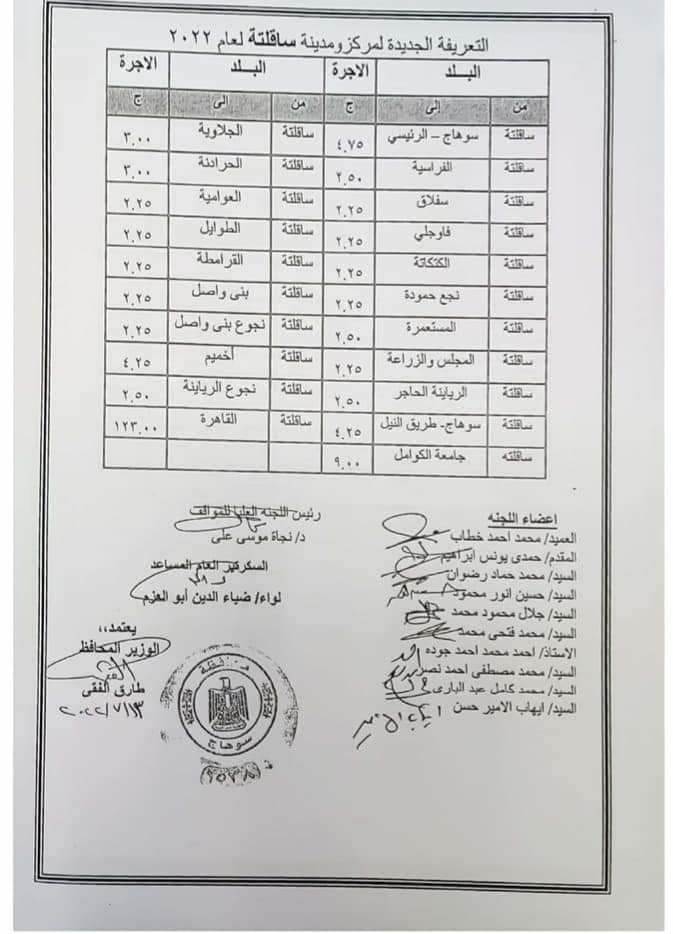 التعريفة الجديدة لمركز ومدينة ساقلتة لعام ٢٠٢٢
البـــلد الاجرة البـــلد الاجرة
من إلى ج من إلى ج
ساقلتة سوهاج – الرئيسي ٤.٧٥ ساقلتة الجلاوية ٣.٠٠
ساقلتة الفراسية ٢.٥٠ ساقلتة الحرادنة ٣.٠٠
ساقلتة سفلاق ٢.٢٥ ساقلتة العوامية ٢.٢٥
ساقلتة قاوجلي ٢.٢٥ ساقلتة الطوايل ٢.٢٥
ساقلتة الكتكاتة ٢.٢٥ ساقلتة القرامطة ٢.٢٥
ساقلتة نجع حمودة ٢.٢٥ ساقلتة بنى واصل ٢.٢٥
ساقلتة المستعمرة ٢.٥٠ ساقلتة نجوع بنى واصل ٢.٢٥
ساقلتة المجلس والزراعة ٢.٢٥ ساقلتة أخميم ٤.٢٥
ساقلتة الرياينة الحاجر ٢.٥٠ ساقلتة نجوع الرياينة ٢.٥٠
ساقلتة سوهاج- طريق النيل ٤.٢٥ ساقلتة القاهرة ١٢٣.٠٠
ساقلته جامعة الكوامل ٩.٠٠
اعضاء اللجنه
العميد/ محمد احمد خطاب
المقدم/ حمدى يونس ابراهيم
السيد/ محمد حماد رضوان
السيد/ حسين انور محمود
السيد/ جلال محمود محمد
السيد/ محمد فتحى محمد
الاستاذ/ احمد محمد احمد جوده
السيد/ محمد مصطفى احمد نصر
السيد/ محمد كامل عبد البارى
السيد/ ايهاب الامير حسن
رئيس اللجنه العليا للمواقف
د/ نجاة موسى على
السكرتير العام المساعد
لواء/ ضياء الدين أبو العزم
يعتمد،،
الوزير المحافظ
طارق الفقى
٢٠٢٢/٧/١٣
محافظة
سوهاج